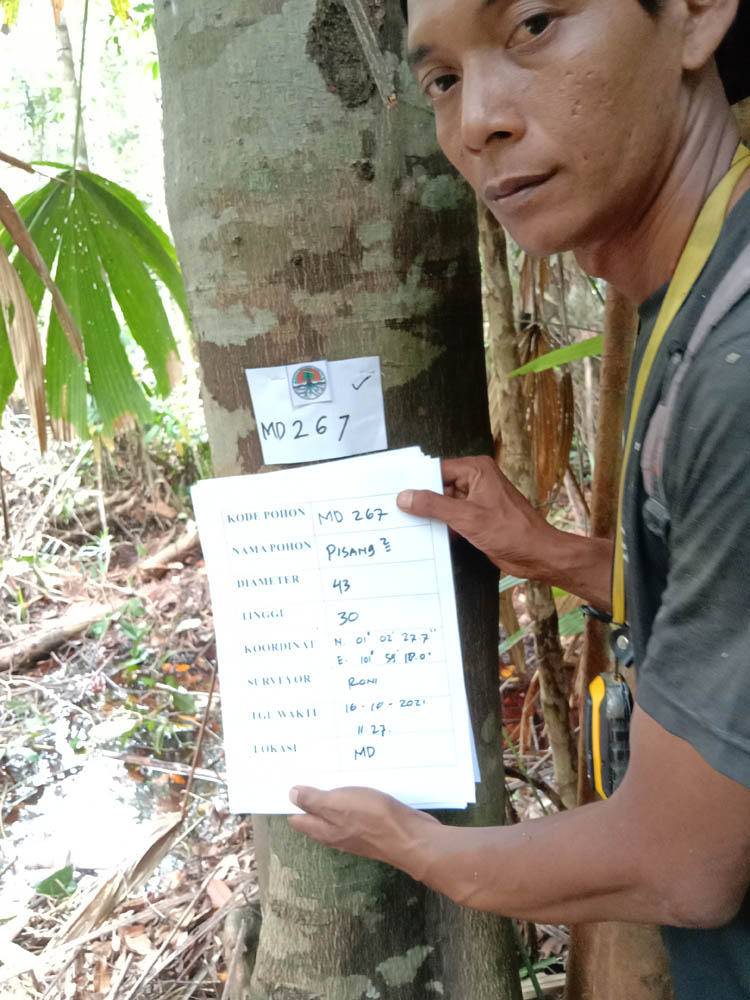 MD 267
KODE POHON MD 267
NAMA POHON PISANG 2
DIAMETER 43
TINGGI 30
KOORDINAT N. 01° 02' 27.7"
E. 101° 55' 18.0"
SURVEYOR RONI
TGL WAKTU 16-10-2021
11.27.
LOKASI MD